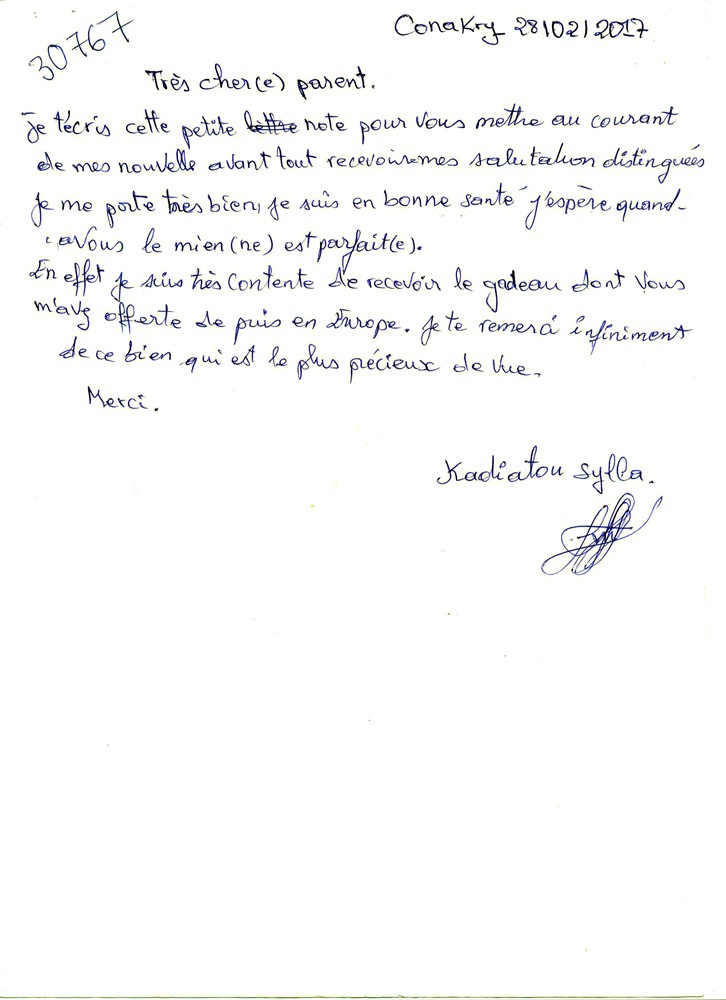 30767
Conakry 28/02/2017
Très cher(e) parent.
Je t'écris cette petite lettre note pour vous mettre au courant
de mes nouvelle avant tout recevoir mes salutation distinguées
Je me porte très bien, je suis en bonne santé j'espère quand-
à vous le mien(ne) est parfait(e).
En effet je suis très contente de recevoir le gadeau dont vous
m'avez offerte de puis en Europe. Je te remerci infiniment
de ce bien qui est le plus précieux de vue.
Merci.
Kadiatou Sylla.